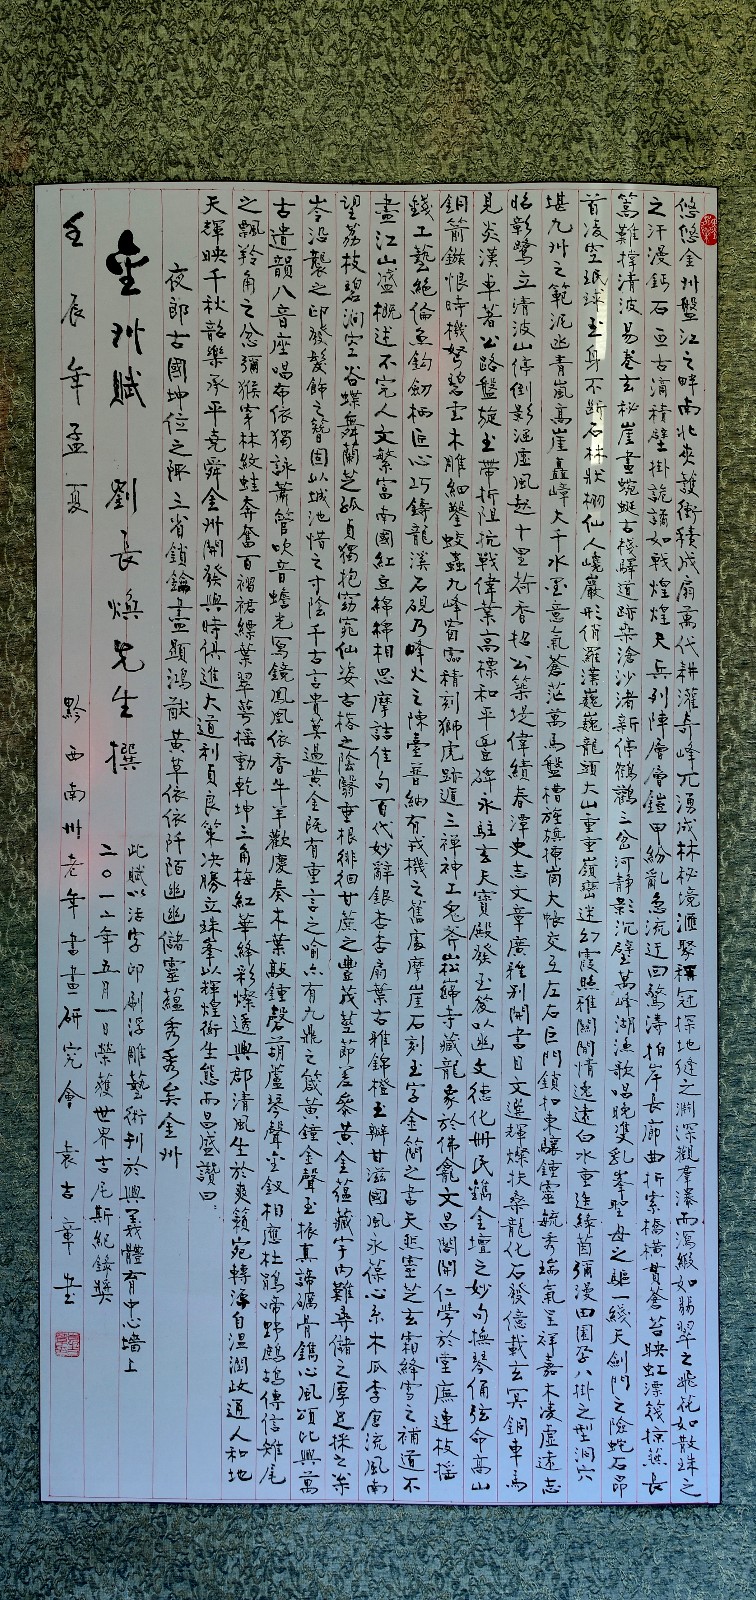 悠悠金州盤江之畔南北夾護衛臻成扇萬代耕灌奇峰兀湧成林秘境滙聚稱冠探地縫之淵深觀羣瀑而瀉緞如翡翠之飛花如散珠之
之汗漫鈣石亘古滴積壁掛詭譎如戰煌煌天兵列陣層層鎧甲紛亂急流迂回驚濤拍岸長廊曲折索橋橫貫蒼苔映虹漂筏掠燕長
篙難撐清波易卷玄秘崖畫蜿蜒古棧驛道跡染滄沙渚新停鶴鸛三岔河靜影沉璧萬峰湖漁歌唱晚雙乳峯聖母之軀一綫天劍門之險蛇石昂
首凌空玉身不斷石林狀柳仙人嶢巖形俏羅漢巍巍龍頭大山重重嶺巒迷幻霞映雅關閒情逸遠白水重連緣茵彌漫田園孕八掛之型洞穴
堪九州之範泥凼青嵐高崖矗嶂大千水墨意氣蒼茫萬馬盤槽旌旗掃崗大帳交互左右巨門鎖扣東驤鍾靈毓秀瑞氣呈祥嘉木凌虛遠志
昭彰鷺立清波山停倒影涵虛風越十里荷香招公築堤偉績春潭史志文章廣雅别開書目文選輝燦扶桑龍化石發億載玄冥銅車馬
見炎漢車著公路盤旋玉帶折阻抗戰偉業高標和平豐碑永駐玄天寶殿發玉笈以幽文德化册民鐫金壇之妙句撫琴俑弦命高山
銅箭鏃恨時機弩碧雲木雕細鑿蛟蟲九峰崗霜精刻獅虎跡遁三禪神工鬼斧崧巋寺藏龍象於佛龕文昌閣開仁學於堂廡連枝搖
錢工藝絕倫魚鈎劒柄匠心巧鑄龍溪石硯乃峰火之陳臺普納有戎機之舊處摩崖石刻玉字金简之書天悲靈芝玄霜絳雪之補道不
盡江山盛概述不完人文繁富南國紅豆棉棉相思摩詰佳句百代妙辭銀杏杏扇葉古雅錦橙玉瓣甘滋國風永葆心系木瓜李唐流風南
望荔枝碧澗空谷蝶舞蘭芝孤貞獨抱窈窕仙姿古榕之陰翳垂根徘徊甘蔗之豐茂莖節差參黄金蘊藏宇内難尋儲之厚足採之米
岑沿襲之印發髮飾之簪固以城池惜之寸陰千古言貴莫過黄金既有重言之喻六有九鼎之箴黄鐘金聲玉振真諦礪骨鐫心風頌比興萬
古遺韻八音座唱布依獨詠蕭管吹音蟾光寫鏡鳳凰依香牛羊歡慶奏木葉敲鍾磬葫蘆琴聲金釵相應杜鵑啼野鷓鴣傳信雉尾
之飄羚角之忿彌猴穿林紋蛙奔奮百褶裙縹葉翠萼摇動乾坤三角梅紅華絳彩燦透興郡清風生於爽籟宛轉濤自温潤政通人和地
天輝映千秋韶樂承平堯舜金州開發與時俱進大道利貞良策决勝立珠峯以輝煌衛生態而昌盛讚曰：
夜郎古國坤位之陬三省鎖鑰盡顯鴻猷黄草依依阡陌幽幽儲靈蘊秀秀矣金州
金州賦 劉長煥先生撰
此賦以活字印刷浮雕藝術刊於興義體育中心墻上
二〇一二年五月一日榮獲世界吉尼斯紀錄獎
壬辰年孟夏 黔西南州老年書畫研究會 袁吉章書